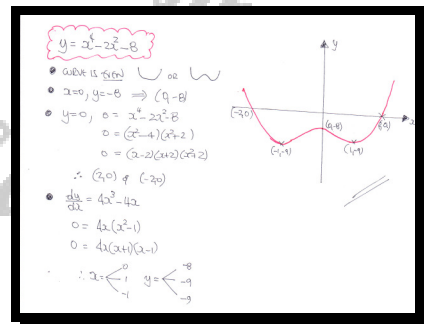 y = x⁴-2x²-8
• CURVE IS EVEN or
• x=0, y=-8 ⟹ (0,-8)
• y=0, 0 = x⁴-2x²-8
0 = (x²-4)(x²+2)
0 = (x-2)(x+2)(x²+2)
∴ (2,0) & (-2,0)
• dy/dx = 4x³-4x
0 = 4x(x²-1)
0 = 4x(x+1)(x-1)
∴ x= 0 1 -1 y= -8 -9 -9
y
x
(-2,0)
(2,0)
(0,-8)
(-1,-9)
(1,-9)